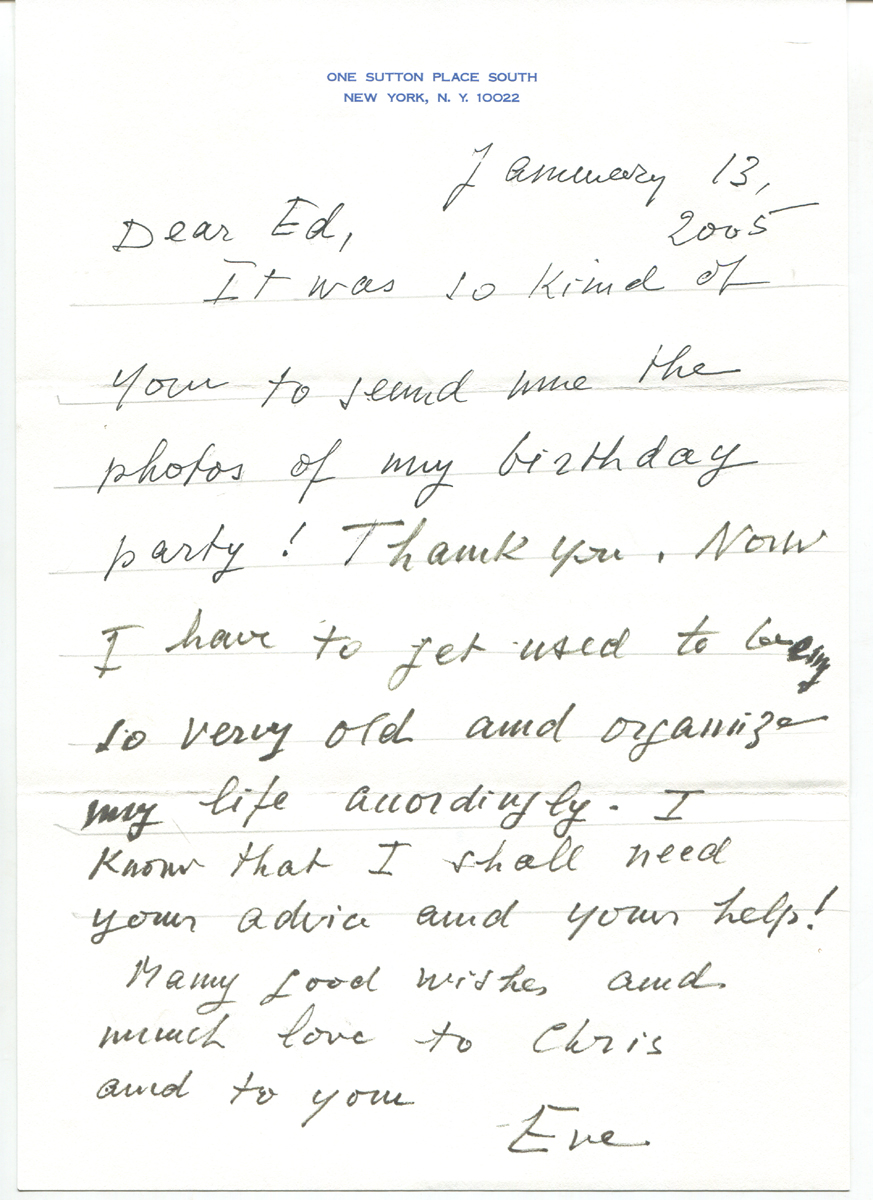 ONE SUTTON PLACE SOUTH
NEW YORK, N. Y. 10022
January 13,
2005
Dear Ed,
It was so kind of
you to send me the
photos of my birthday
party! Thank you. Now
I have to get used to being
so very old and organize
my life accordingly. I
know that I shall need
your advice and your help!
Many good wishes and
much love to Chris
and to you
Eve